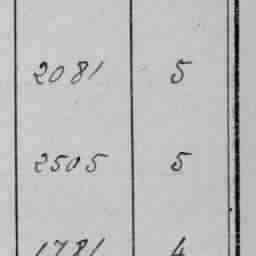 2081 5
2505 5
1781 4